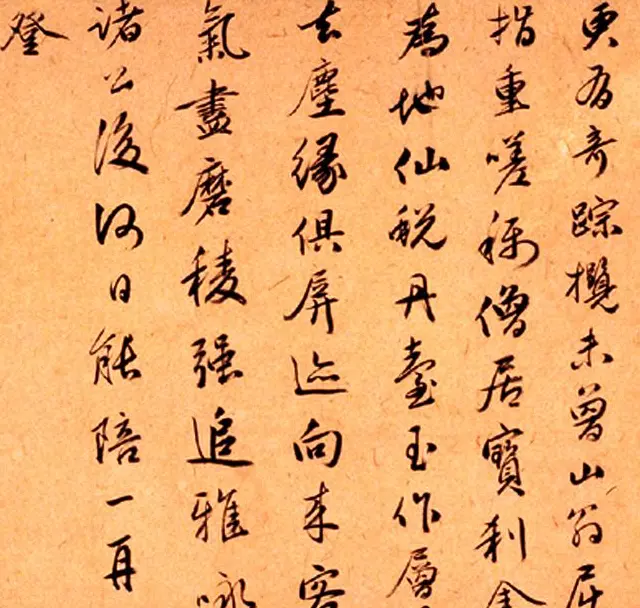 更有奇踪攬未曾山翁屈
指重嗟稱僧居寶刹金
為地仙蛻丹臺玉作層
去塵緣俱屏迹向来客
氣盡磨稜强追雅詠
諸公後何日能陪一再
登